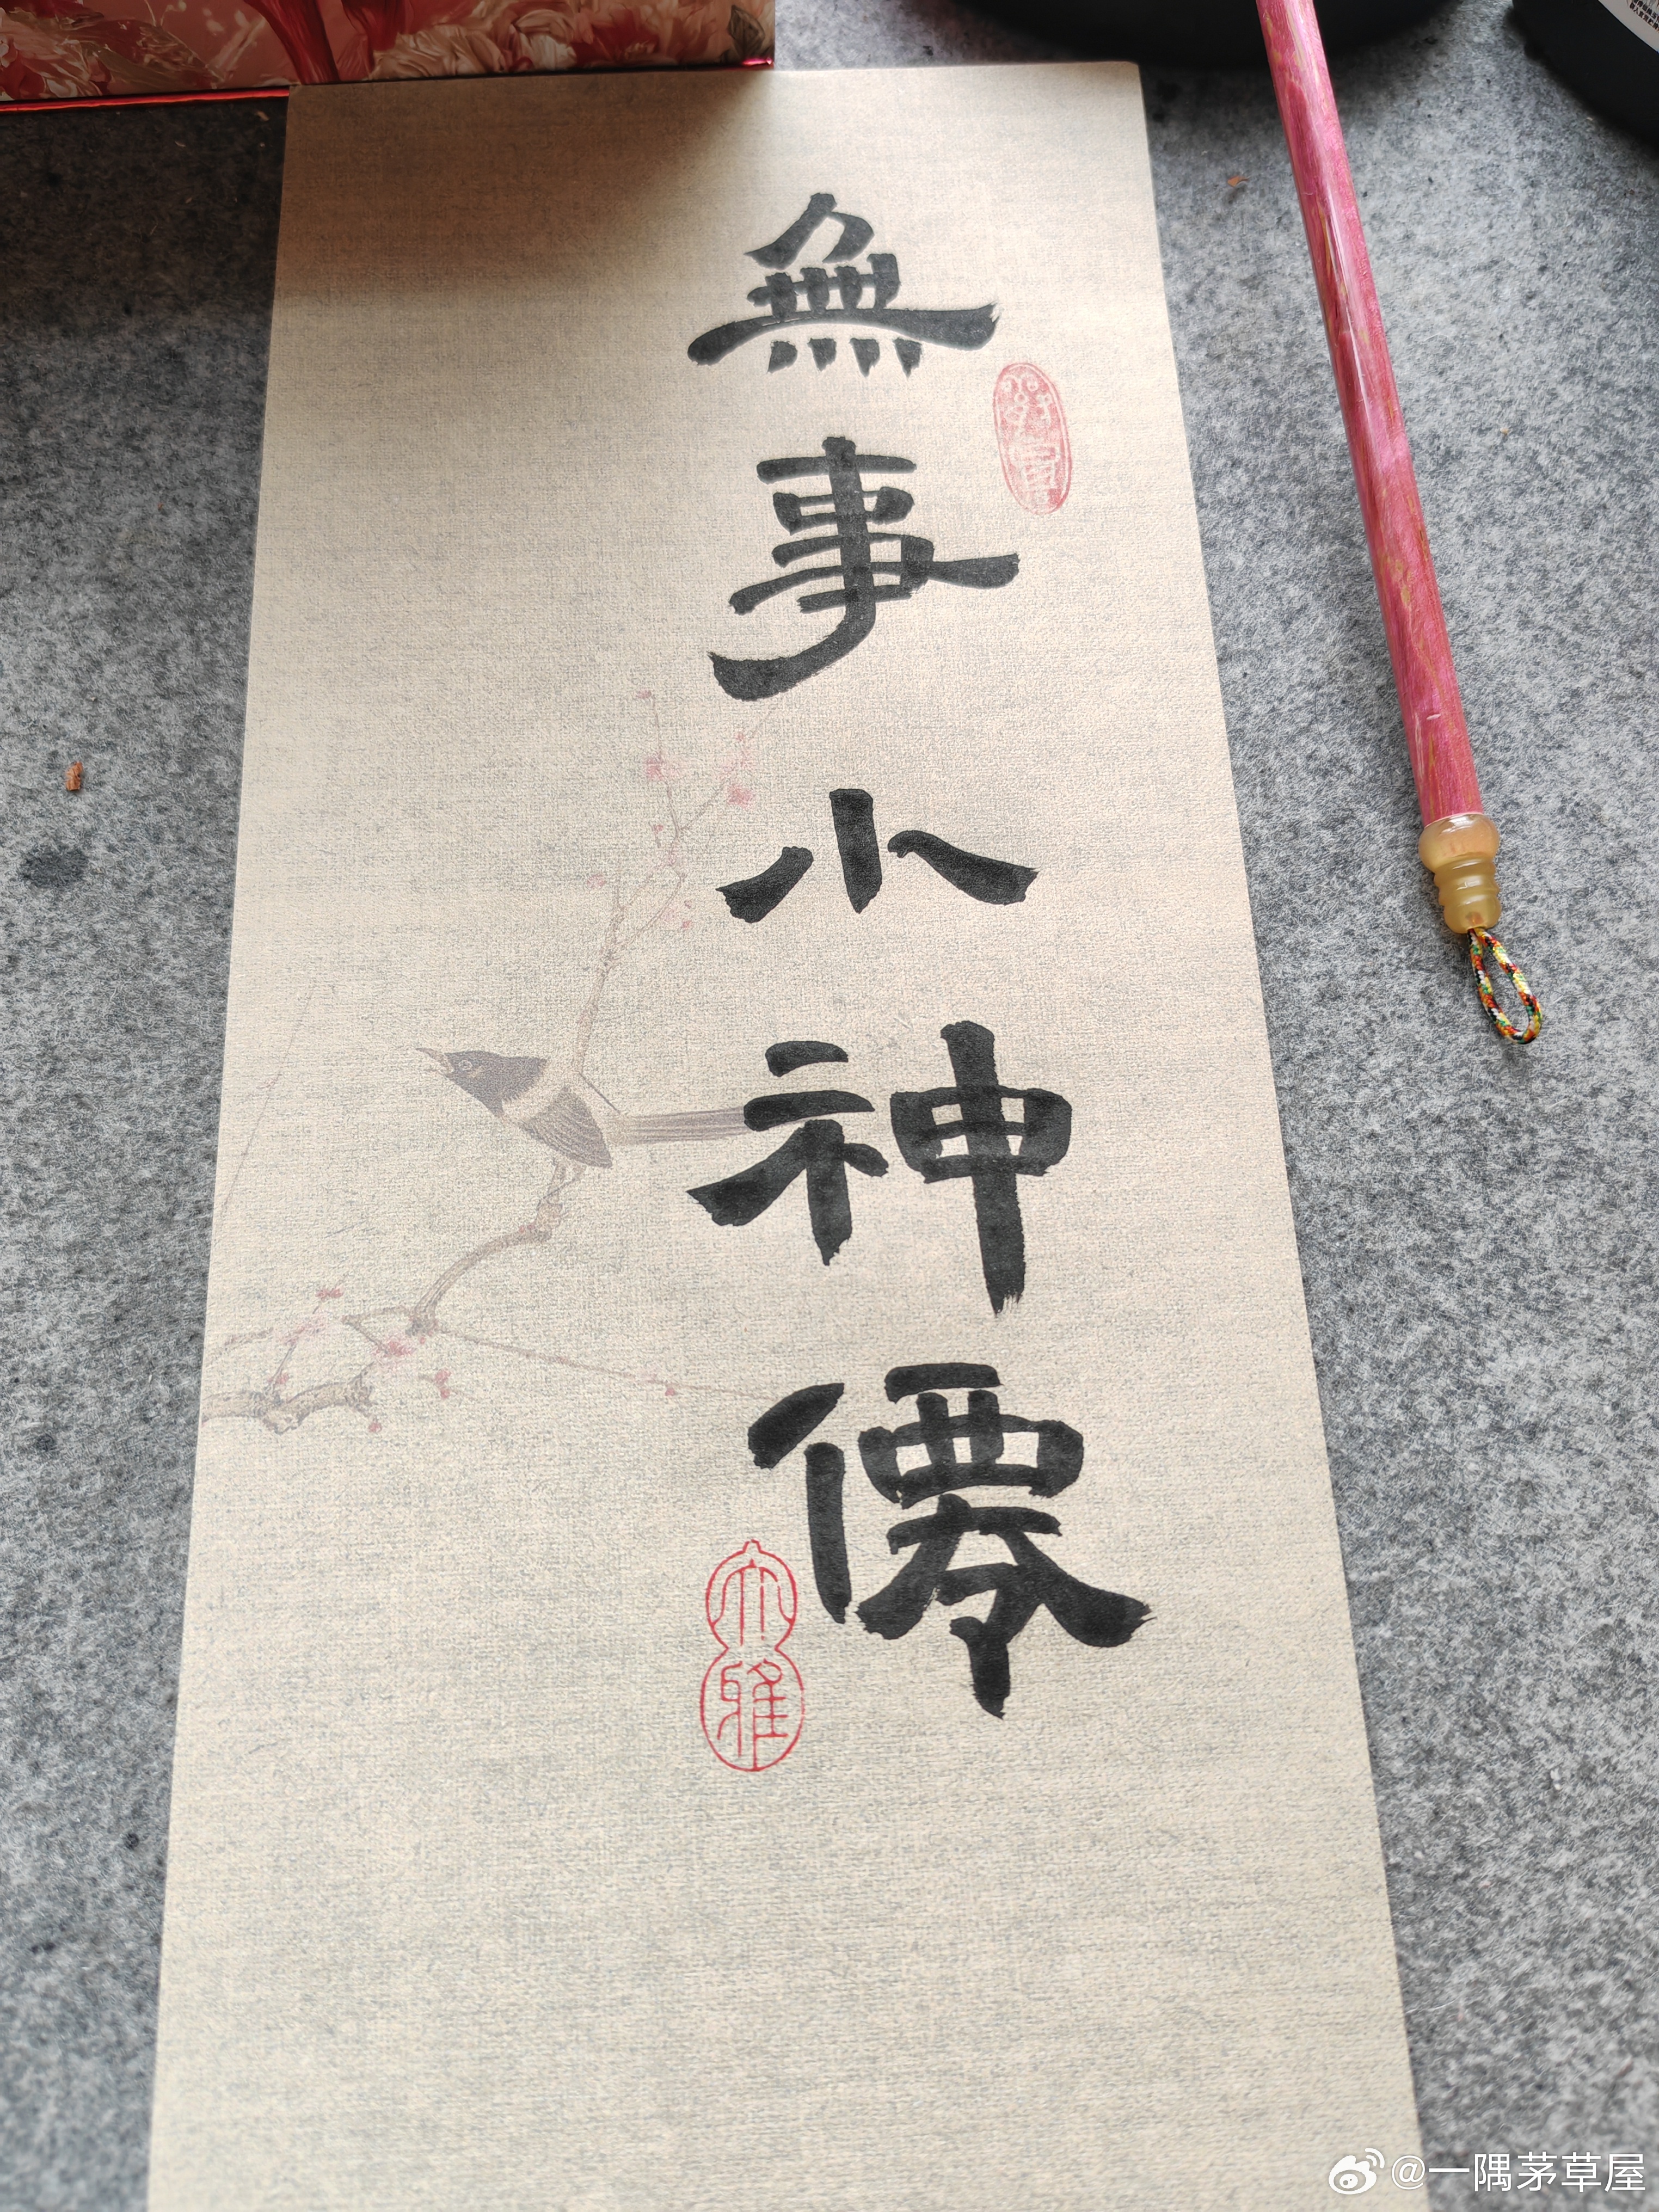 無事小神僊
大雅
@一隅茅草屋